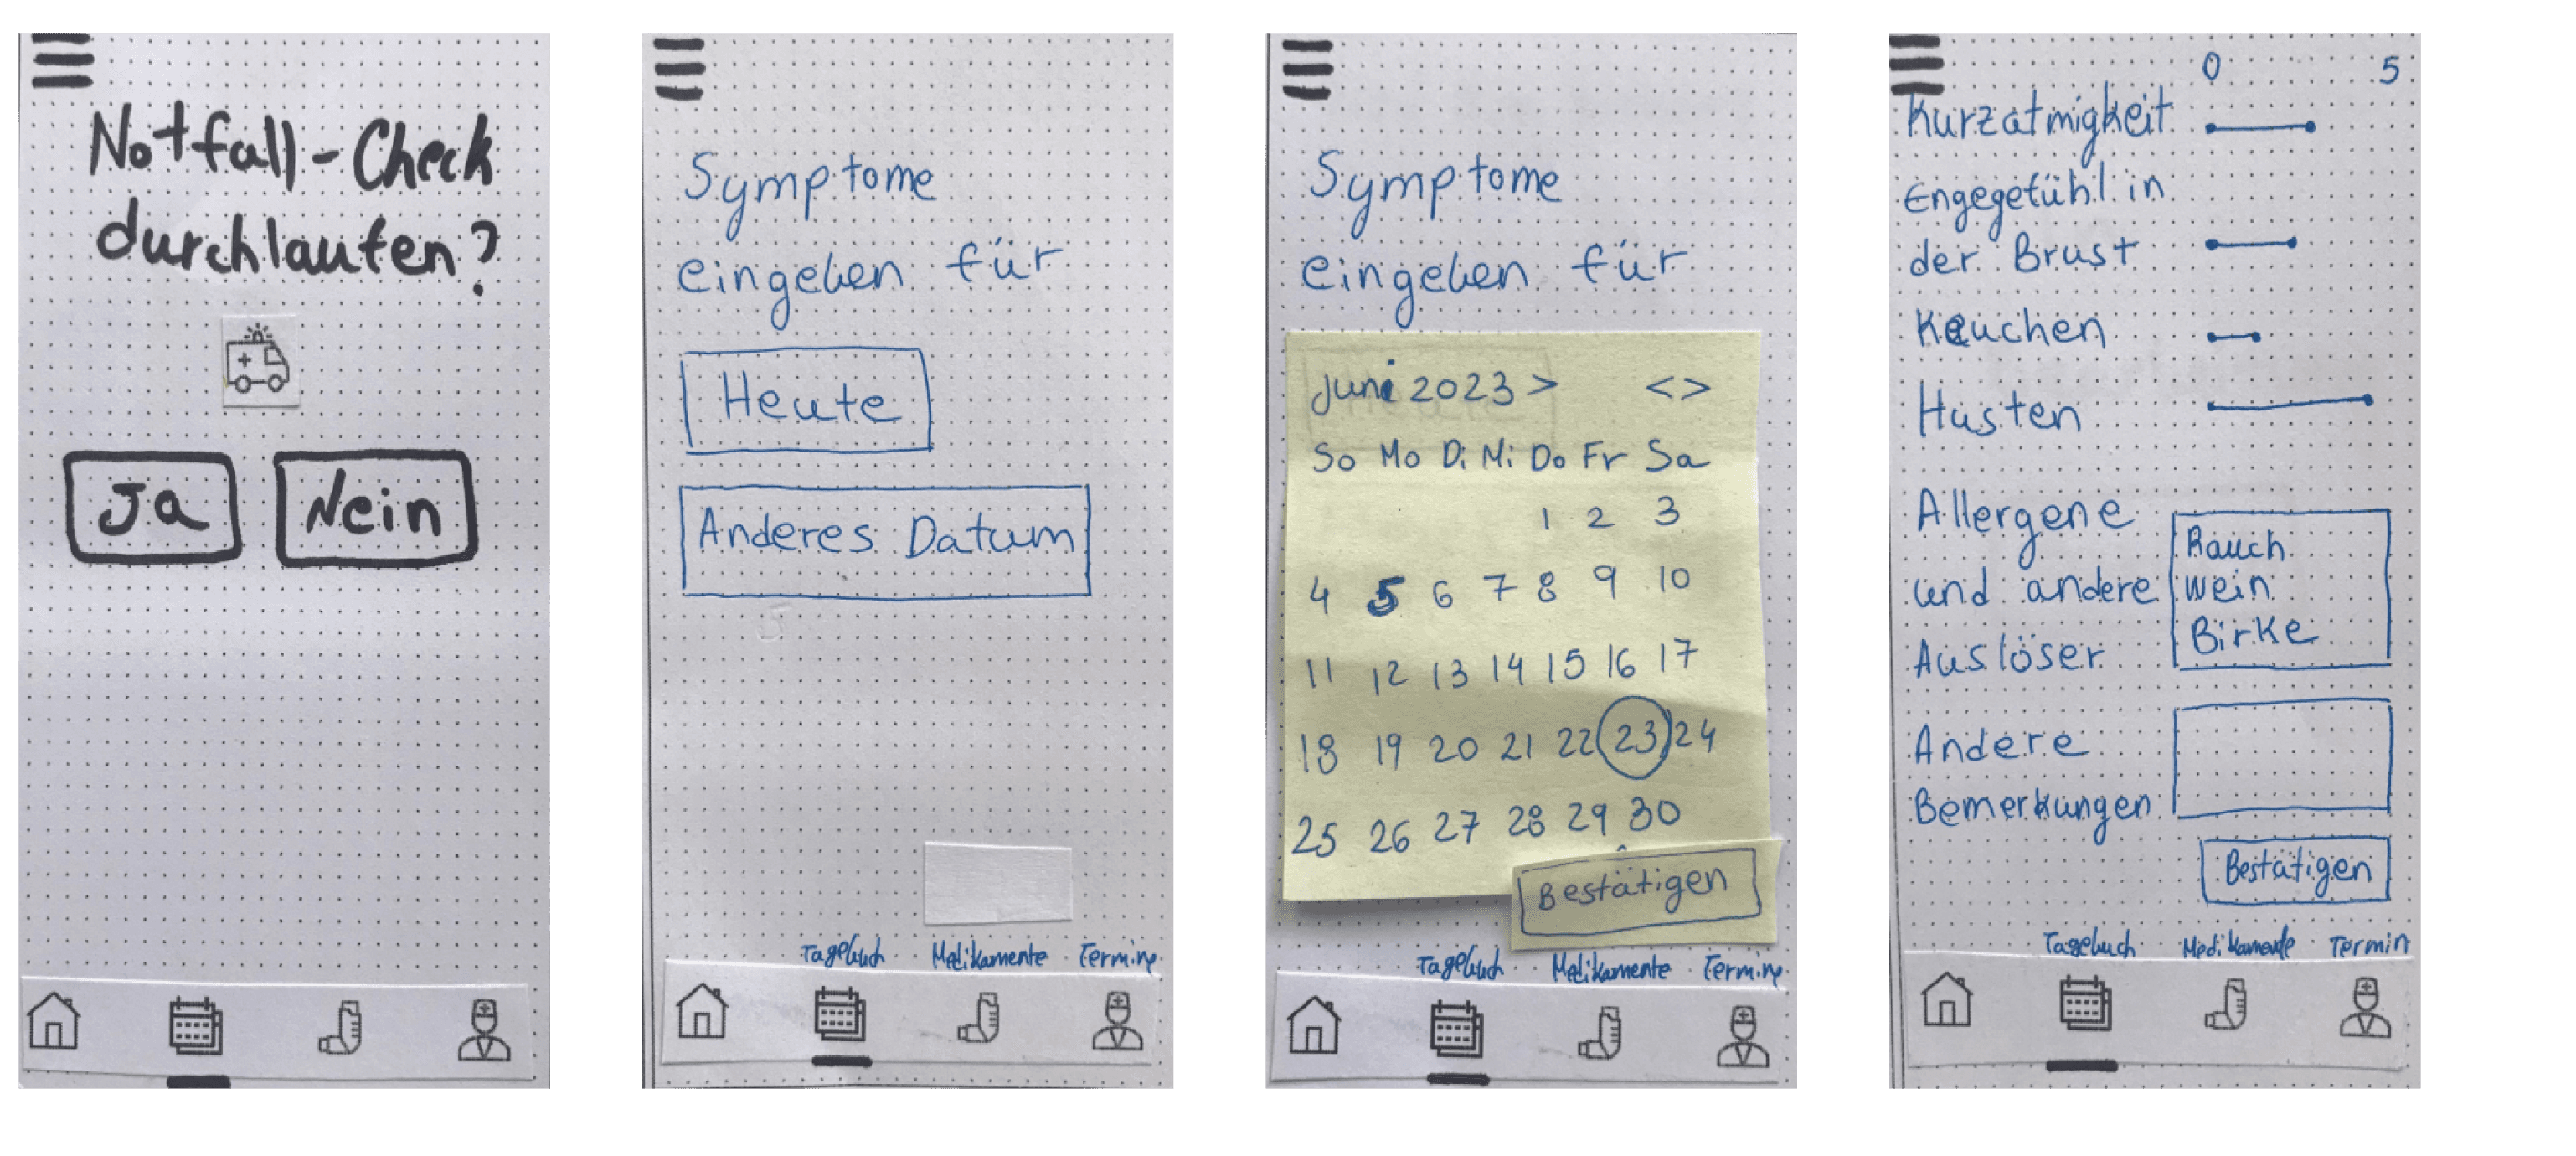 Notfall-Check
durchlaufen?
Ja
Nein
Symptome
eingeben für
Heute
Anderes Datum
Tagebuch Medikamente Termine
Symptome
eingeben für
Juni 2023 > < >
So Mo Di Mi Do Fr Sa
1 2 3
4 5 6 7 8 9 10
11 12 13 14 15 16 17
18 19 20 21 22 23 24
25 26 27 28 29 30
Bestätigen
Tagebuch Medikamente Termine
0 5
Kurzatmigkeit
Engegefühl in
der Brust
Keuchen
Husten
Allergene
und andere
Auslöser
Rauch
Wein
Birke
Andere
Bemerkungen
Bestätigen
Tagebuch Medikamente Termin